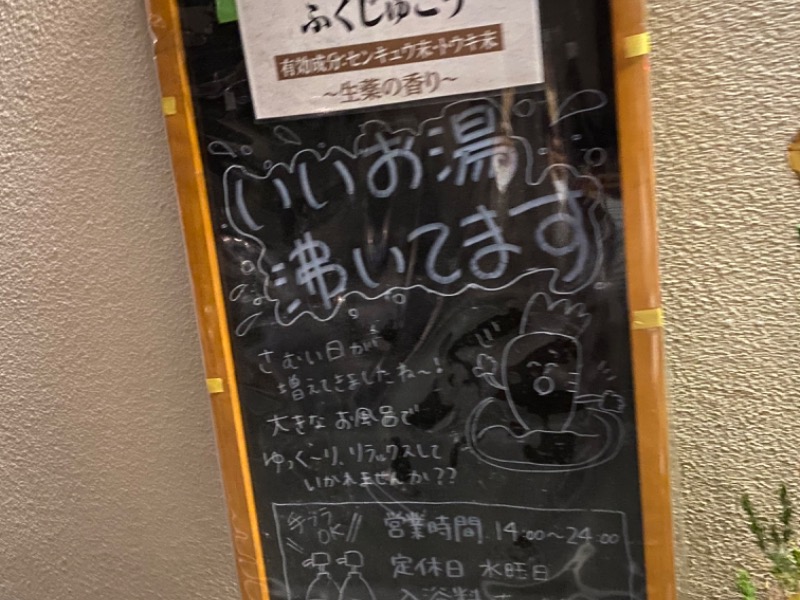 ふくじゅこう
有効成分:センキュウ末・トウキ末
〜生薬の香り〜
いいお湯
沸いてます
さむい日が
増えてきましたね〜!
大きなお風呂で
ゆっく〜り、リラックスして
いかれませんか??
手ブラ
OK
営業時間 14:00〜24:00
定休日 水曜日
入浴料